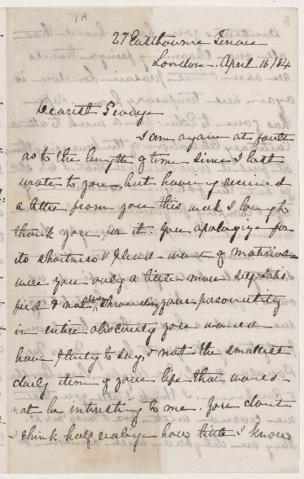 27 Eastbourne Terrace
London - April 16/84
Dearest Georgy
I am again at fault
as to the length of time since I last
wrote to you, but having received
a letter from you this week I
thank you for it. You apologize for
its shortness & plead - want of material
were you only a little more
& not throwing your personality
in entire obscurity you would
have plenty to say, & not the smallest
daily item of your life that would
not be interesting to me. You don't
I think half realize how little I know